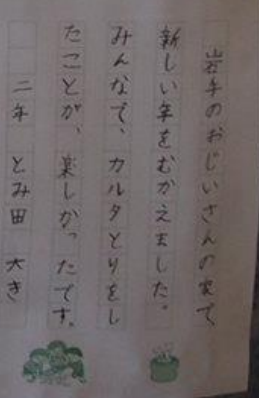 岩手のおじいさんの家で
新しい年をむかえました。
みんなで、カルタとりをし
たことが、楽しかったです。
二年 とみ田 大き